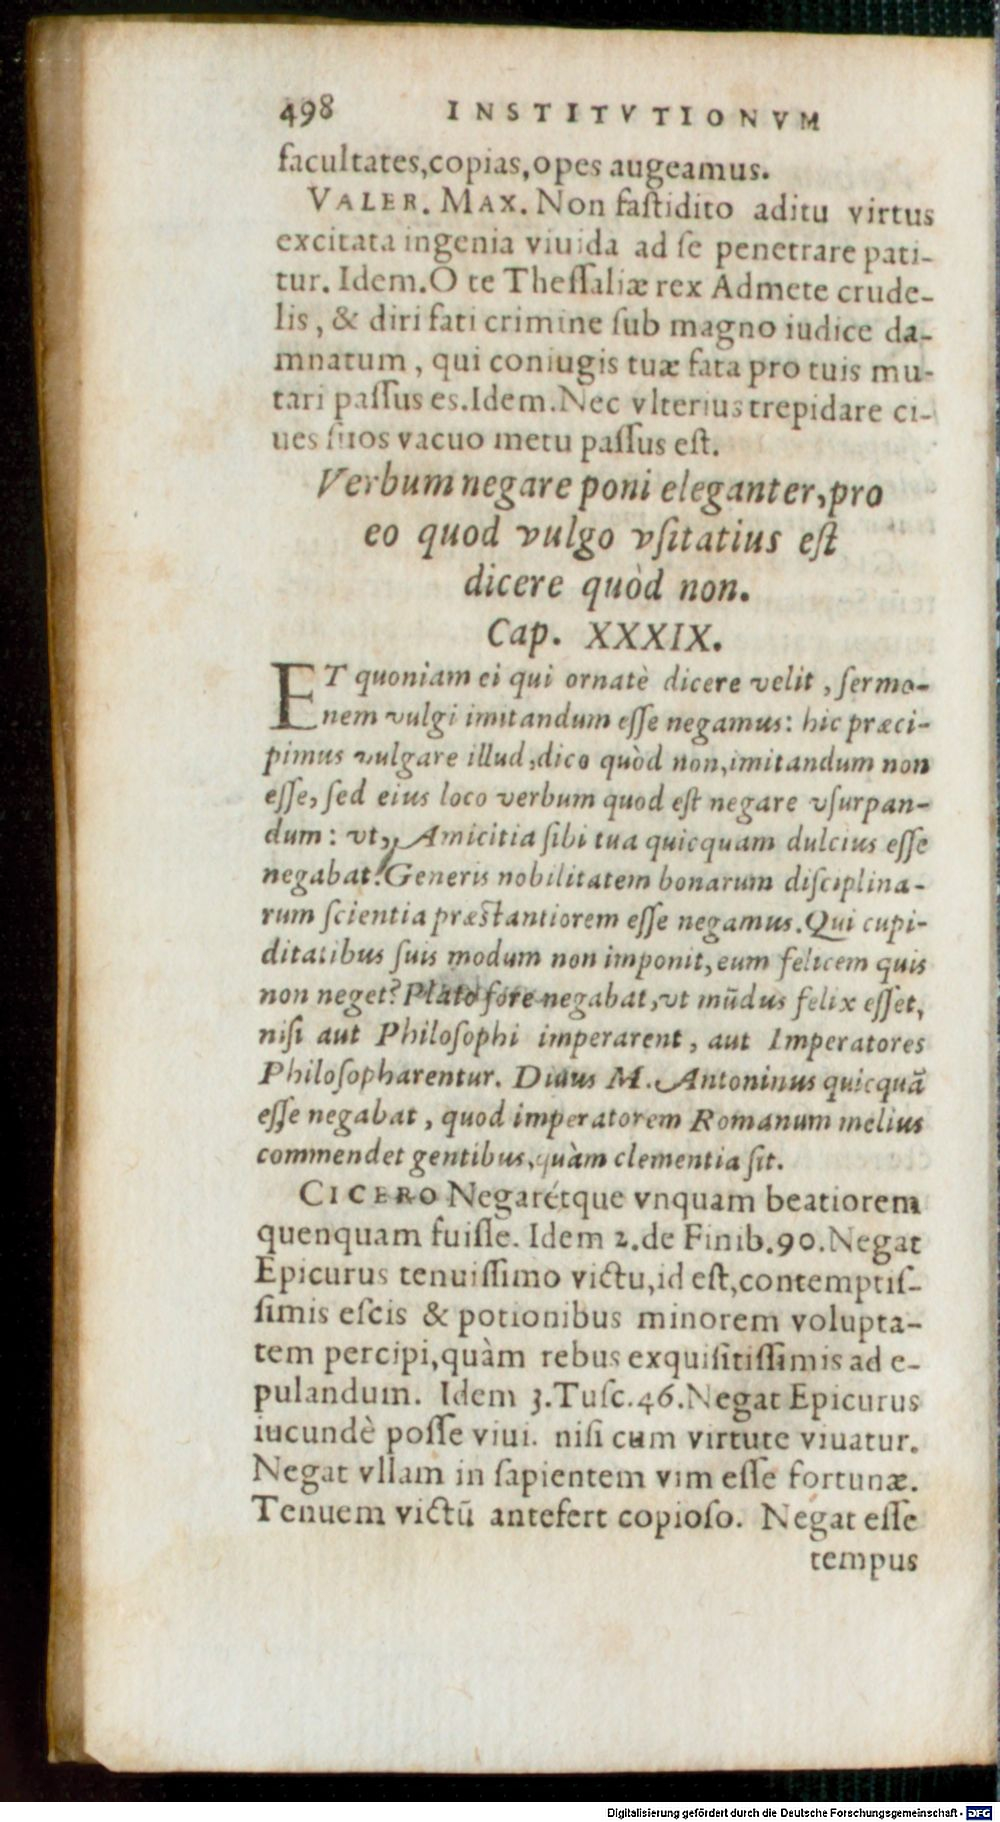 498 INSTITVTIONVM
facultates,copias,opes augeamus.
VALER. MAX. Non fastidito aditu virtus
excitata ingenia viuida ad se penetrare pati-
tur. Idem.O te Thessaliæ rex Admete crude-
lis, & diri fati crimine sub magno iudice da-
mnatum, qui coniugis tuæ fata pro tuis mu-
tari passus es.Idem.Nec vlterius trepidare ci-
ues suos vacuo metu passus est.
Verbum negare poni eleganter,pro
eo quod vulgo vsitatius est
dicere quòd non.
Cap. XXXIX.
ET quoniam ei qui ornatè dicere velit, sermo-
nem vulgi imitandum esse negamus: hic præci-
pimus vulgare illud,dico quòd non,imitandum non
esse, sed eius loco verbum quod est negare vsurpan-
dum: vt, Amicitia sibi tua quicquam dulcius esse
negabat. Generis nobilitatem bonarum disciplina-
rum scientia præstantiorem esse negamus. Qui cupi-
ditatibus suis modum non imponit, eum felicem quis
non neget? Plato fore negabat, vt mūdus felix esset,
nisi aut Philosophi imperarent, aut Imperatores
Philosopharentur. Diuus M. Antoninus quicquā
esse negabat, quod imperatorem Romanum melius
commendet gentibus, quàm clementia sit.
CICERO Negarétque vnquam beatiorem
quenquam fuisse. Idem 2.de Finib.90.Negat
Epicurus tenuissimo victu,id est,contemptis-
simis escis & potionibus minorem volupta-
tem percipi,quàm rebus exquisitissimis ad e-
pulandum. Idem 3.Tusc.46.Negat Epicurus
iucundè posse viui. nisi cum virtute viuatur.
Negat vllam in sapientem vim esse fortunæ.
Tenuem victū antefert copioso. Negat esse
tempus
Digitalisierung gefördert durch die Deutsche Forschungsgemeinschaft - DFG